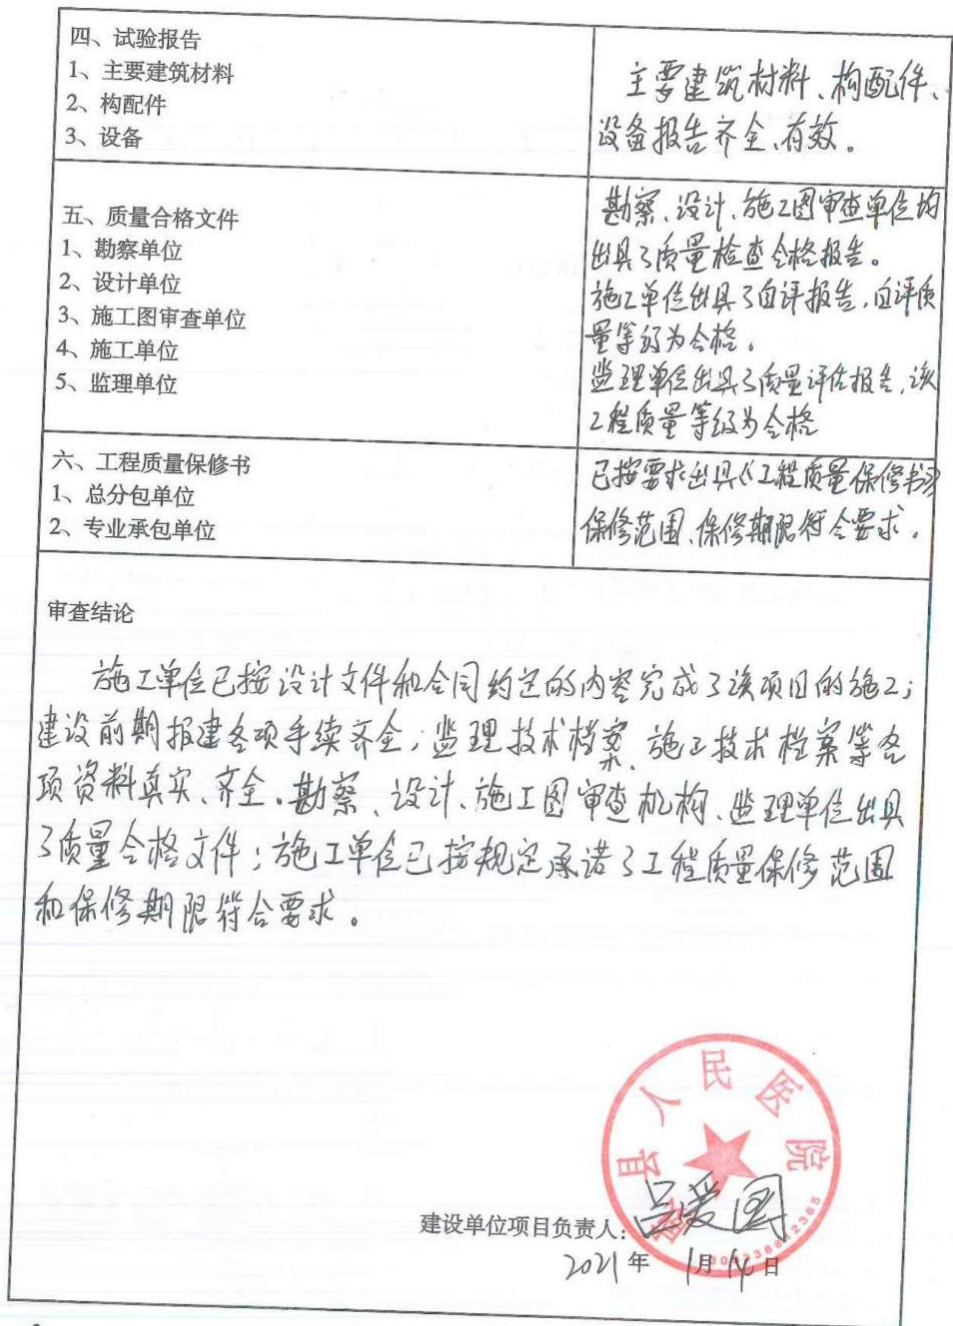 四、试验报告
1、主要建筑材料
2、构配件
3、设备
主要建筑材料、构配件、
设备报告齐全、有效。
五、质量合格文件
1、勘察单位
2、设计单位
3、施工图审查单位
4、施工单位
5、监理单位
勘察、设计、施工图审查单位均
出具了质量检查合格报告。
施工单位出具了自评报告，自评质
量等级为合格。
监理单位出具了质量评估报告，该
工程质量等级为合格
六、工程质量保修书
1、总分包单位
2、专业承包单位
已按要求出具《工程质量保修书》
保修范围、保修期限符合要求。
审查结论
施工单位已按设计文件和合同约定的内容完成了该项目的施工；
建设前期报建各项手续齐全；监理技术档案、施工技术档案等各
项资料真实、齐全。勘察、设计、施工图审查机构、监理单位出具
了质量合格文件；施工单位已按规定承诺了工程质量保修范围
和保修期限符合要求。
县人民医院
建设单位项目负责人：吕爱国
2021年 1月14日